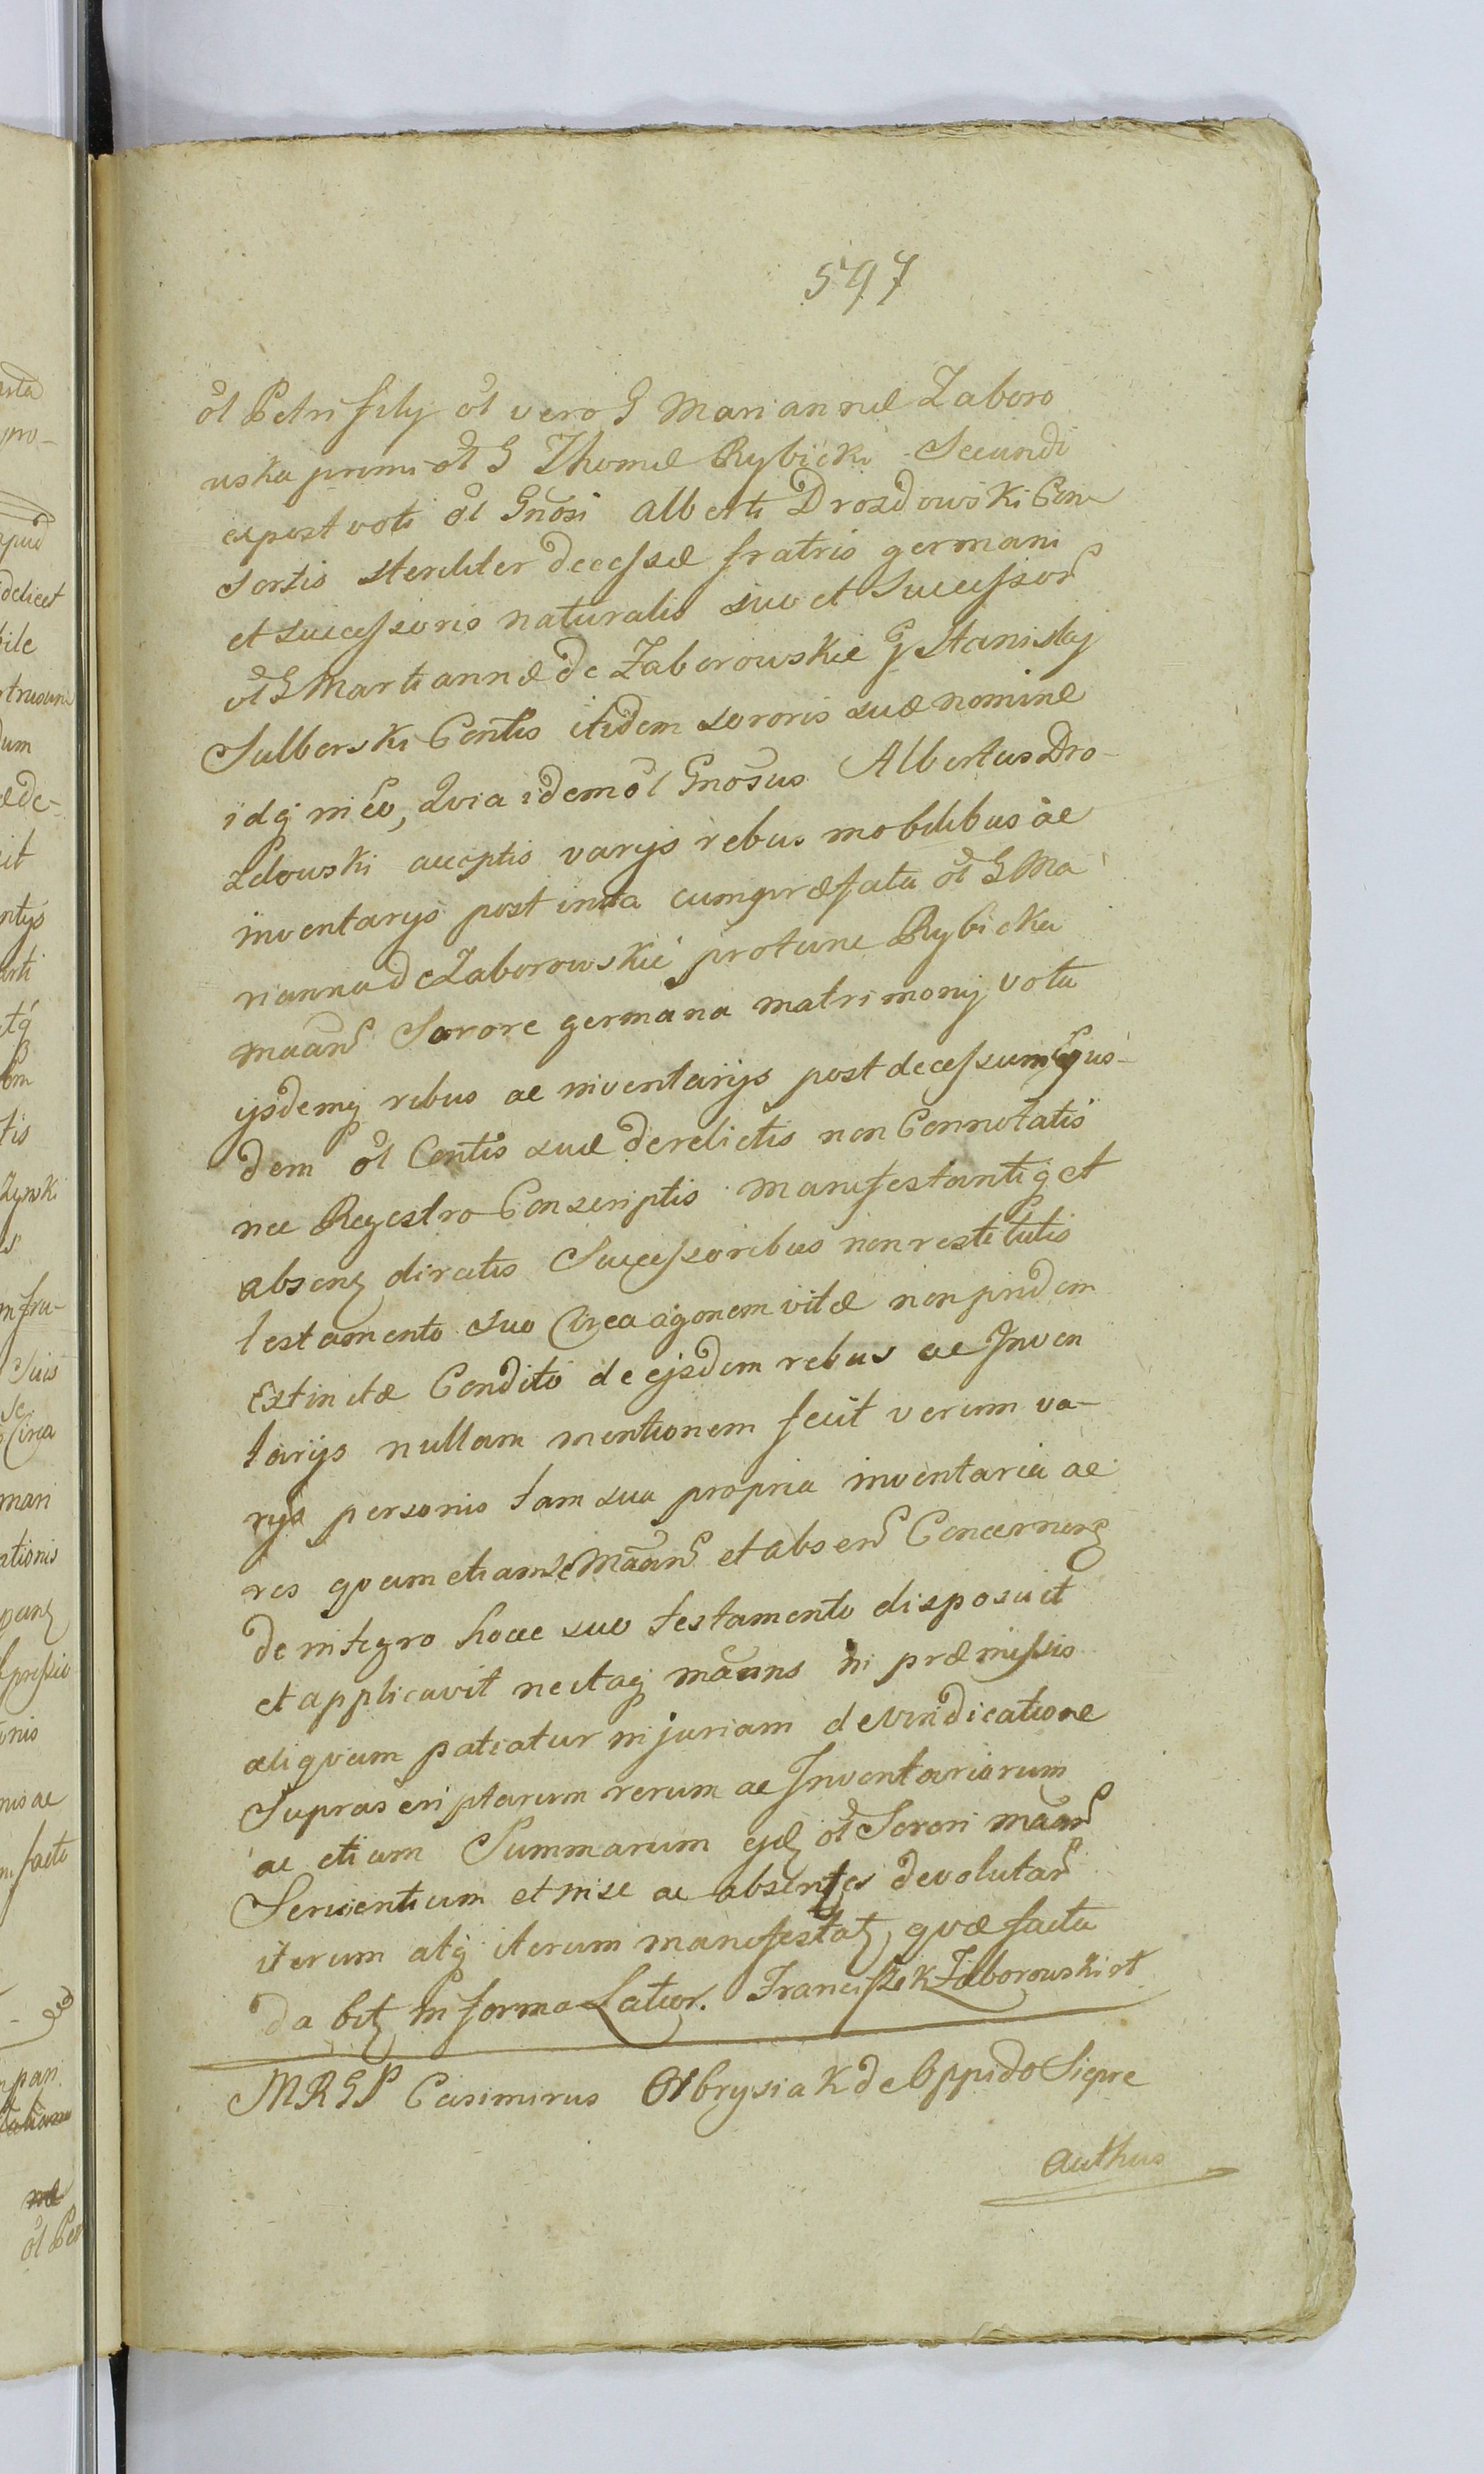 597
ol Petri filÿ ol vero G Mariannæ Zaboro
wska primi ol G Thomæ Rybicki Secundi
expost voti ol Gnosi Alberti Drozdowski Con
sortis steriliter decessæ fratris germani
et successoris naturalis suo et Successor
ol G Martiannæ de Zaborowskie G Stanislaj
Sulberski Contis itidem sororis suæ nomine
idq in eo, Quia idem ol Gnosus Albertus Dro-
zdowski acceptis varijs rebus mobilibus ac
inventarijs post inita cum præfata ol G Ma
rianna de Zaborowskie protunc Rybicka
maan Sorore germana matrimonij vota
ijsdemq rebus ac inventarijs post decessum Ejus-
dem ol Contis suæ derelictis non Connotatis
nec Regestro Conscriptis Manifestantiq et
absenz diratis Successoribus non restitutis
testamento suo Circa agonem vitæ non pridem
Extinctæ Condito de ejsdem rebus ac Inven
tarijs nullam mentionem fecit verum va-
rijs personis tam sua propria inventaria ac
res qvam etiam se Maan et absen Concernenz
de integro hocce suo testamento disposuit
et applicavit ne itaq maans in præmissis
aliqvam patiatur injuriam de vindicatione
Suprascriptarum rerum ac Inventariorum
ac etiam Summarum ejd ol Sorori maan
Servientium et in se ac absentes devolutar
iterum atq iterum manifestatz, qvæ facta
dabitz in forma Latior. Franciszek Zaborowski mt
MRGP Casimirus Olbrysiak de Oppido Siepre
authus